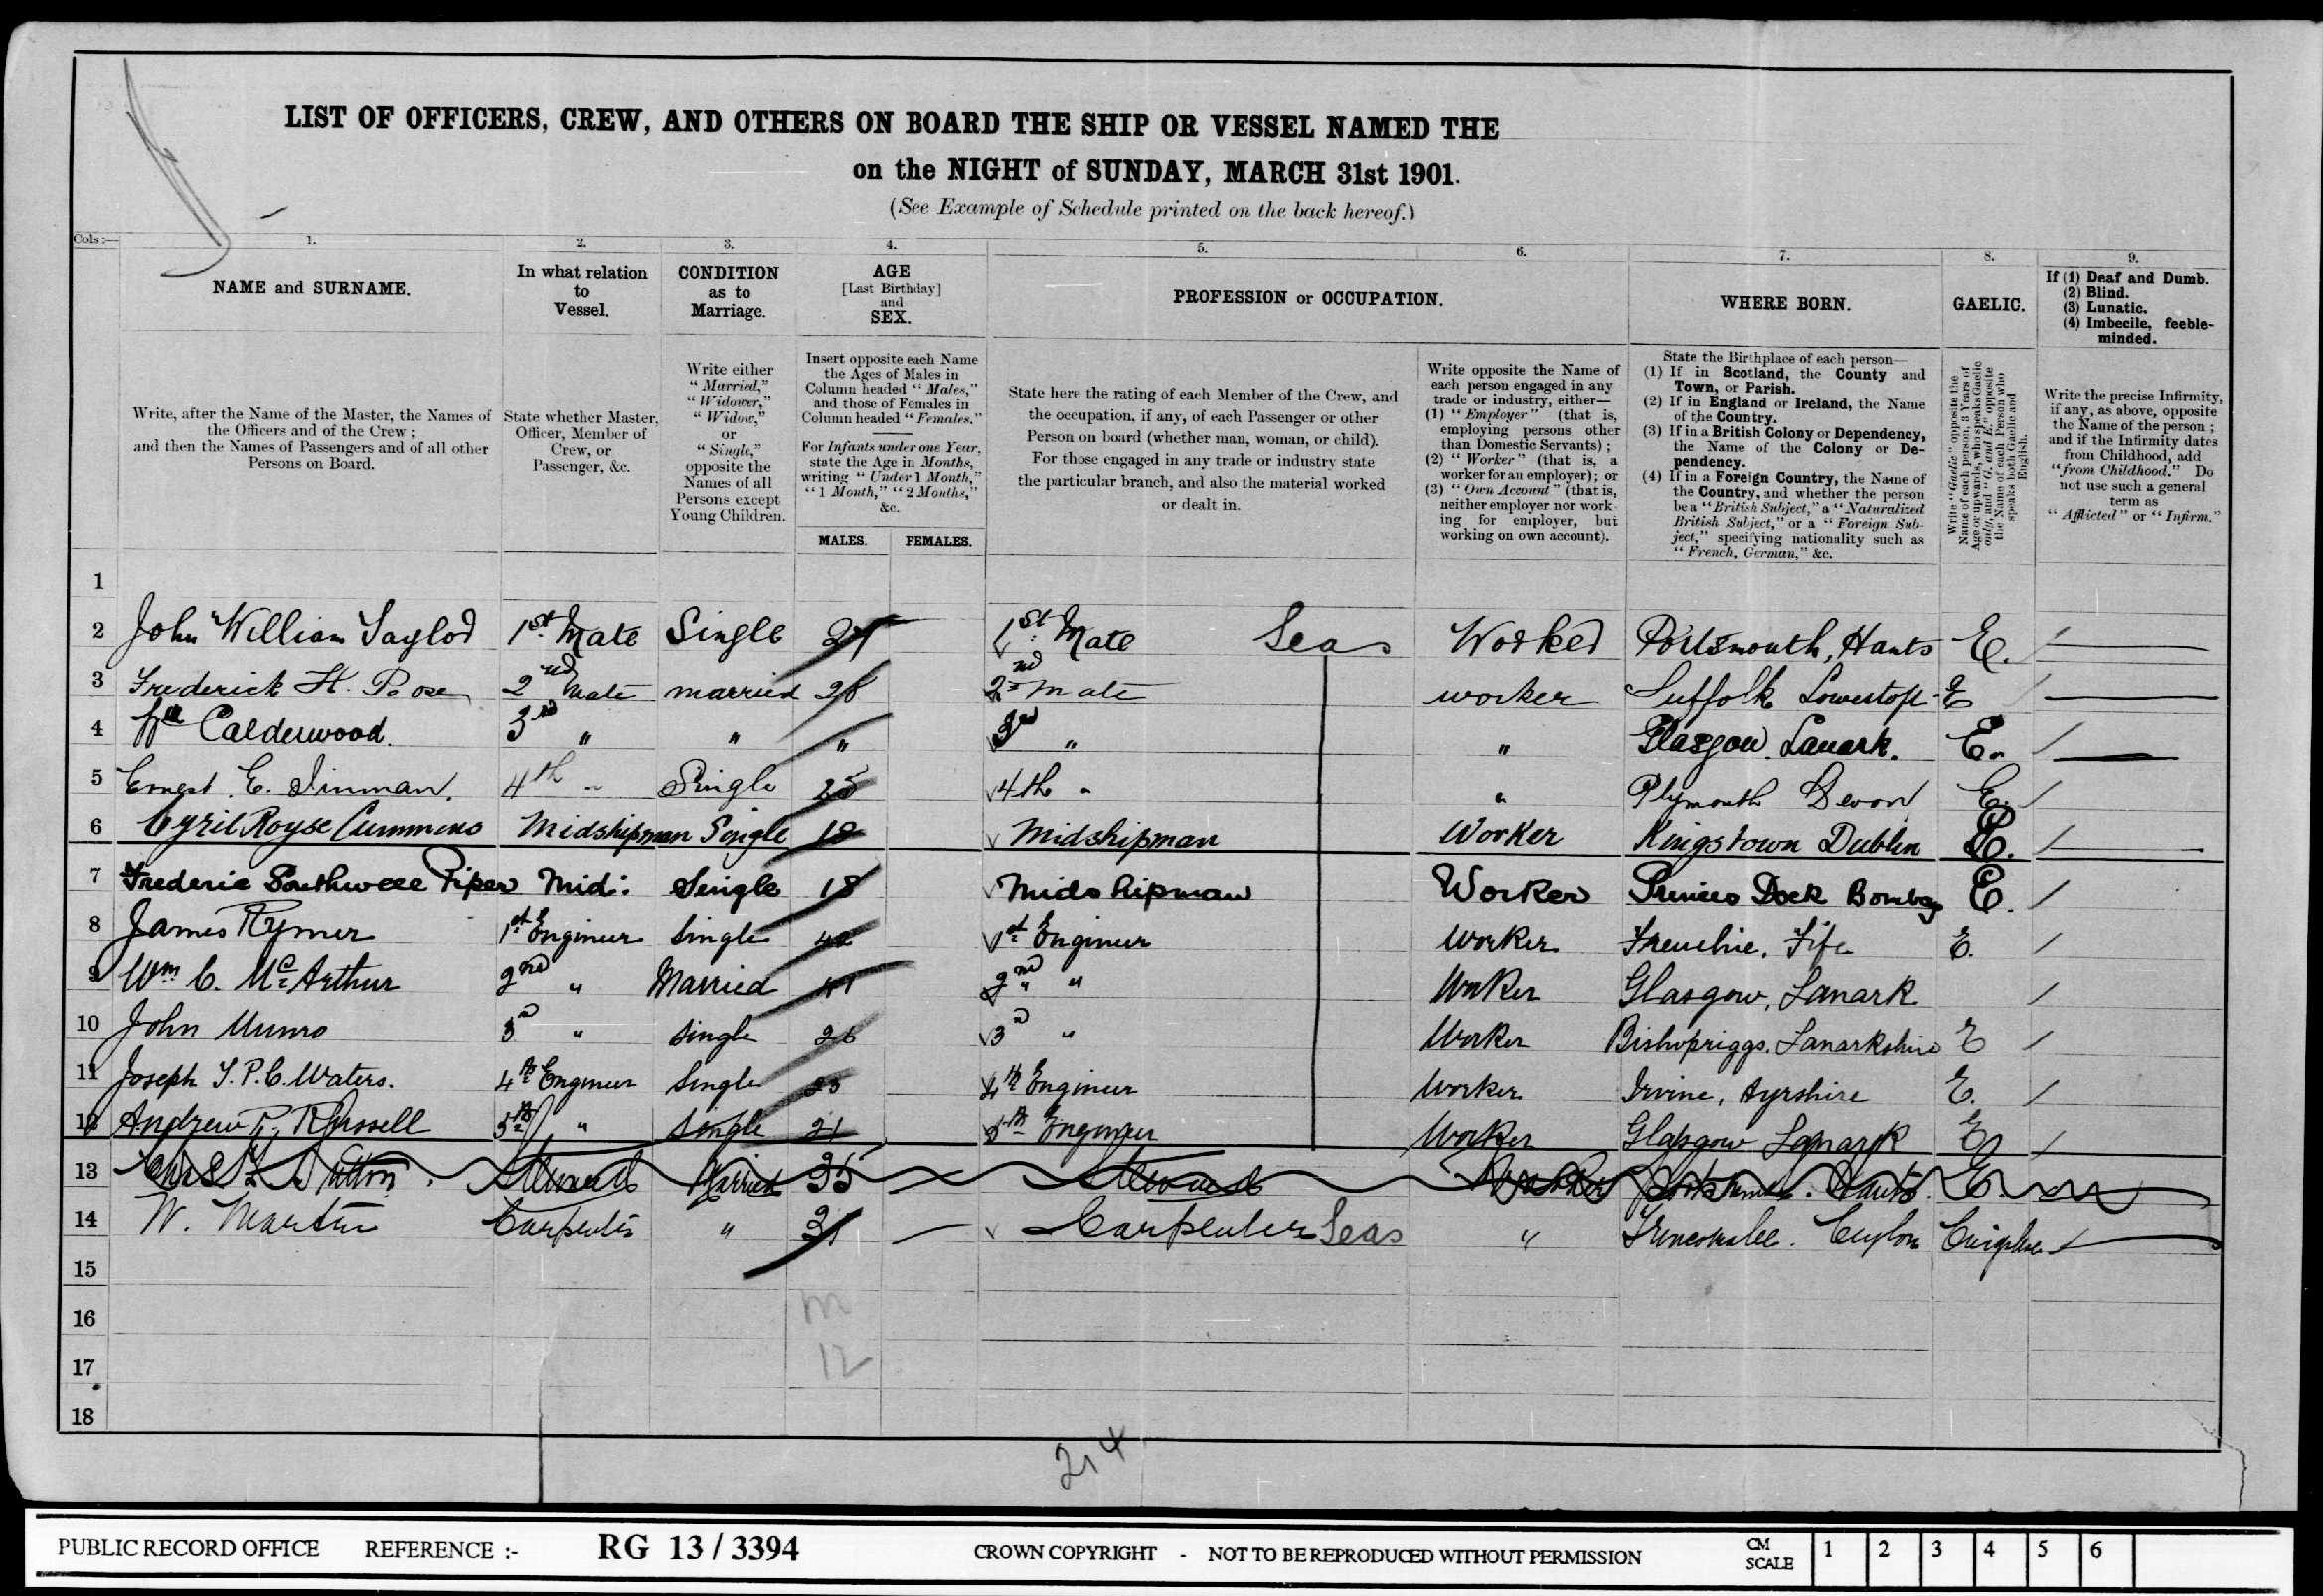 LIST OF OFFICERS, CREW, AND OTHERS ON BOARD THE SHIP OR VESSEL NAMED THE
on the NIGHT of SUNDAY, MARCH 31st 1901.
(See Example of Schedule printed on the back hereof.)
Cols:— 1. 2. 3. 4. 5. 6. 7. 8. 9.
NAME and SURNAME.
Write, after the Name of the Master, the Names of
the Officers and of the Crew;
and then the Names of Passengers and of all other
Persons on Board.
In what relation
to
Vessel.
State whether Master,
Officer, Member of
Crew, or
Passenger, &c.
CONDITION
as to
Marriage.
Write either
"Married,"
"Widower,"
"Widow,"
or
"Single,"
opposite the
Names of all
Persons except
Young Children.
AGE
[Last Birthday]
and
SEX.
Insert opposite each Name
the Ages of Males in
Column headed "Males,"
and those of Females in
Column headed "Females."
For Infants under one Year,
state the Age in Months,
writing "Under 1 Month,"
"1 Month," "2 Months,"
&c.
MALES. FEMALES.
PROFESSION or OCCUPATION.
State here the rating of each Member of the Crew, and
the occupation, if any, of each Passenger or other
Person on board (whether man, woman, or child).
For those engaged in any trade or industry state
the particular branch, and also the material worked
or dealt in.
Write opposite the Name of
each person engaged in any
trade or industry, either—
(1) "Employer" (that is,
employing persons other
than Domestic Servants);
(2) "Worker" (that is, a
worker for an employer); or
(3) "Own Account" (that is,
neither employer nor work-
ing for employer, but
working on own account).
WHERE BORN.
State the Birthplace of each person—
(1) If in Scotland, the County and
Town, or Parish.
(2) If in England or Ireland, the Name
of the Country.
(3) If in a British Colony or Dependency,
the Name of the Colony or De-
pendency.
(4) If in a Foreign Country, the Name of
the Country, and whether the person
be a "British Subject," a "Naturalized
British Subject," or a "Foreign Sub-
ject," specifying nationality such as
"French, German," &c.
GAELIC.
Write "Gaelic" opposite the
Name of each person, 3 Years of
Age or upwards, who speaks Gaelic
only, and "G. and E." opposite
the Name of each Person who
speaks both Gaelic and
English.
If (1) Deaf and Dumb.
(2) Blind.
(3) Lunatic.
(4) Imbecile, feeble-
minded.
Write the precise Infirmity,
if any, as above, opposite
the Name of the person;
and if the Infirmity dates
from Childhood, add
"from Childhood." Do
not use such a general
term as
"Afflicted" or "Infirm."
1
2 John William Taylor 1st Mate Single 1st Mate Seas Worker Portsmouth, Hants E.
3 Frederick H. 2nd Mate married 2nd mate worker Suffolk Lowestoft E
4 Wm Calderwood. 3rd " " " 3rd " " Glasgow. Lanark. E.
5 Ernest E. Inman. 4th " Single 25 4th " " Plymouth Devon E.
6 Cyril Royse Cummins Midshipman Single 18 Midshipman Worker Kingstown Dublin E.
7 Frederic Southwell Piper Mid: Single 18 Midshipman Worker Princes Dock Bombay E.
8 James Rymer 1st Engineer Single 1st Engineer Worker Freuchie, Fife E.
9 Wm C. McArthur 2nd " Married 41 2nd " Worker Glasgow, Lanark
10 John Munro 3rd " Single 26 3rd " Worker Bishopriggs. Lanarkshire E
11 Joseph T. P. C. Waters. 4th Engineer Single 23 4th Engineer Worker Irvine, Ayrshire E.
12 Andrew Russell 5th " Single 21 5th Engineer Worker Glasgow Lanark E
13 Dutton. Steward Married 35 Steward Worker Hants. E.
14 W. Martin Carpenter " 31 Carpenter Seas " Trincomalee. Ceylon English
15
16
17
18
m
12
214
PUBLIC RECORD OFFICE REFERENCE :- RG 13 / 3394 CROWN COPYRIGHT - NOT TO BE REPRODUCED WITHOUT PERMISSION CM SCALE 1 2 3 4 5 6